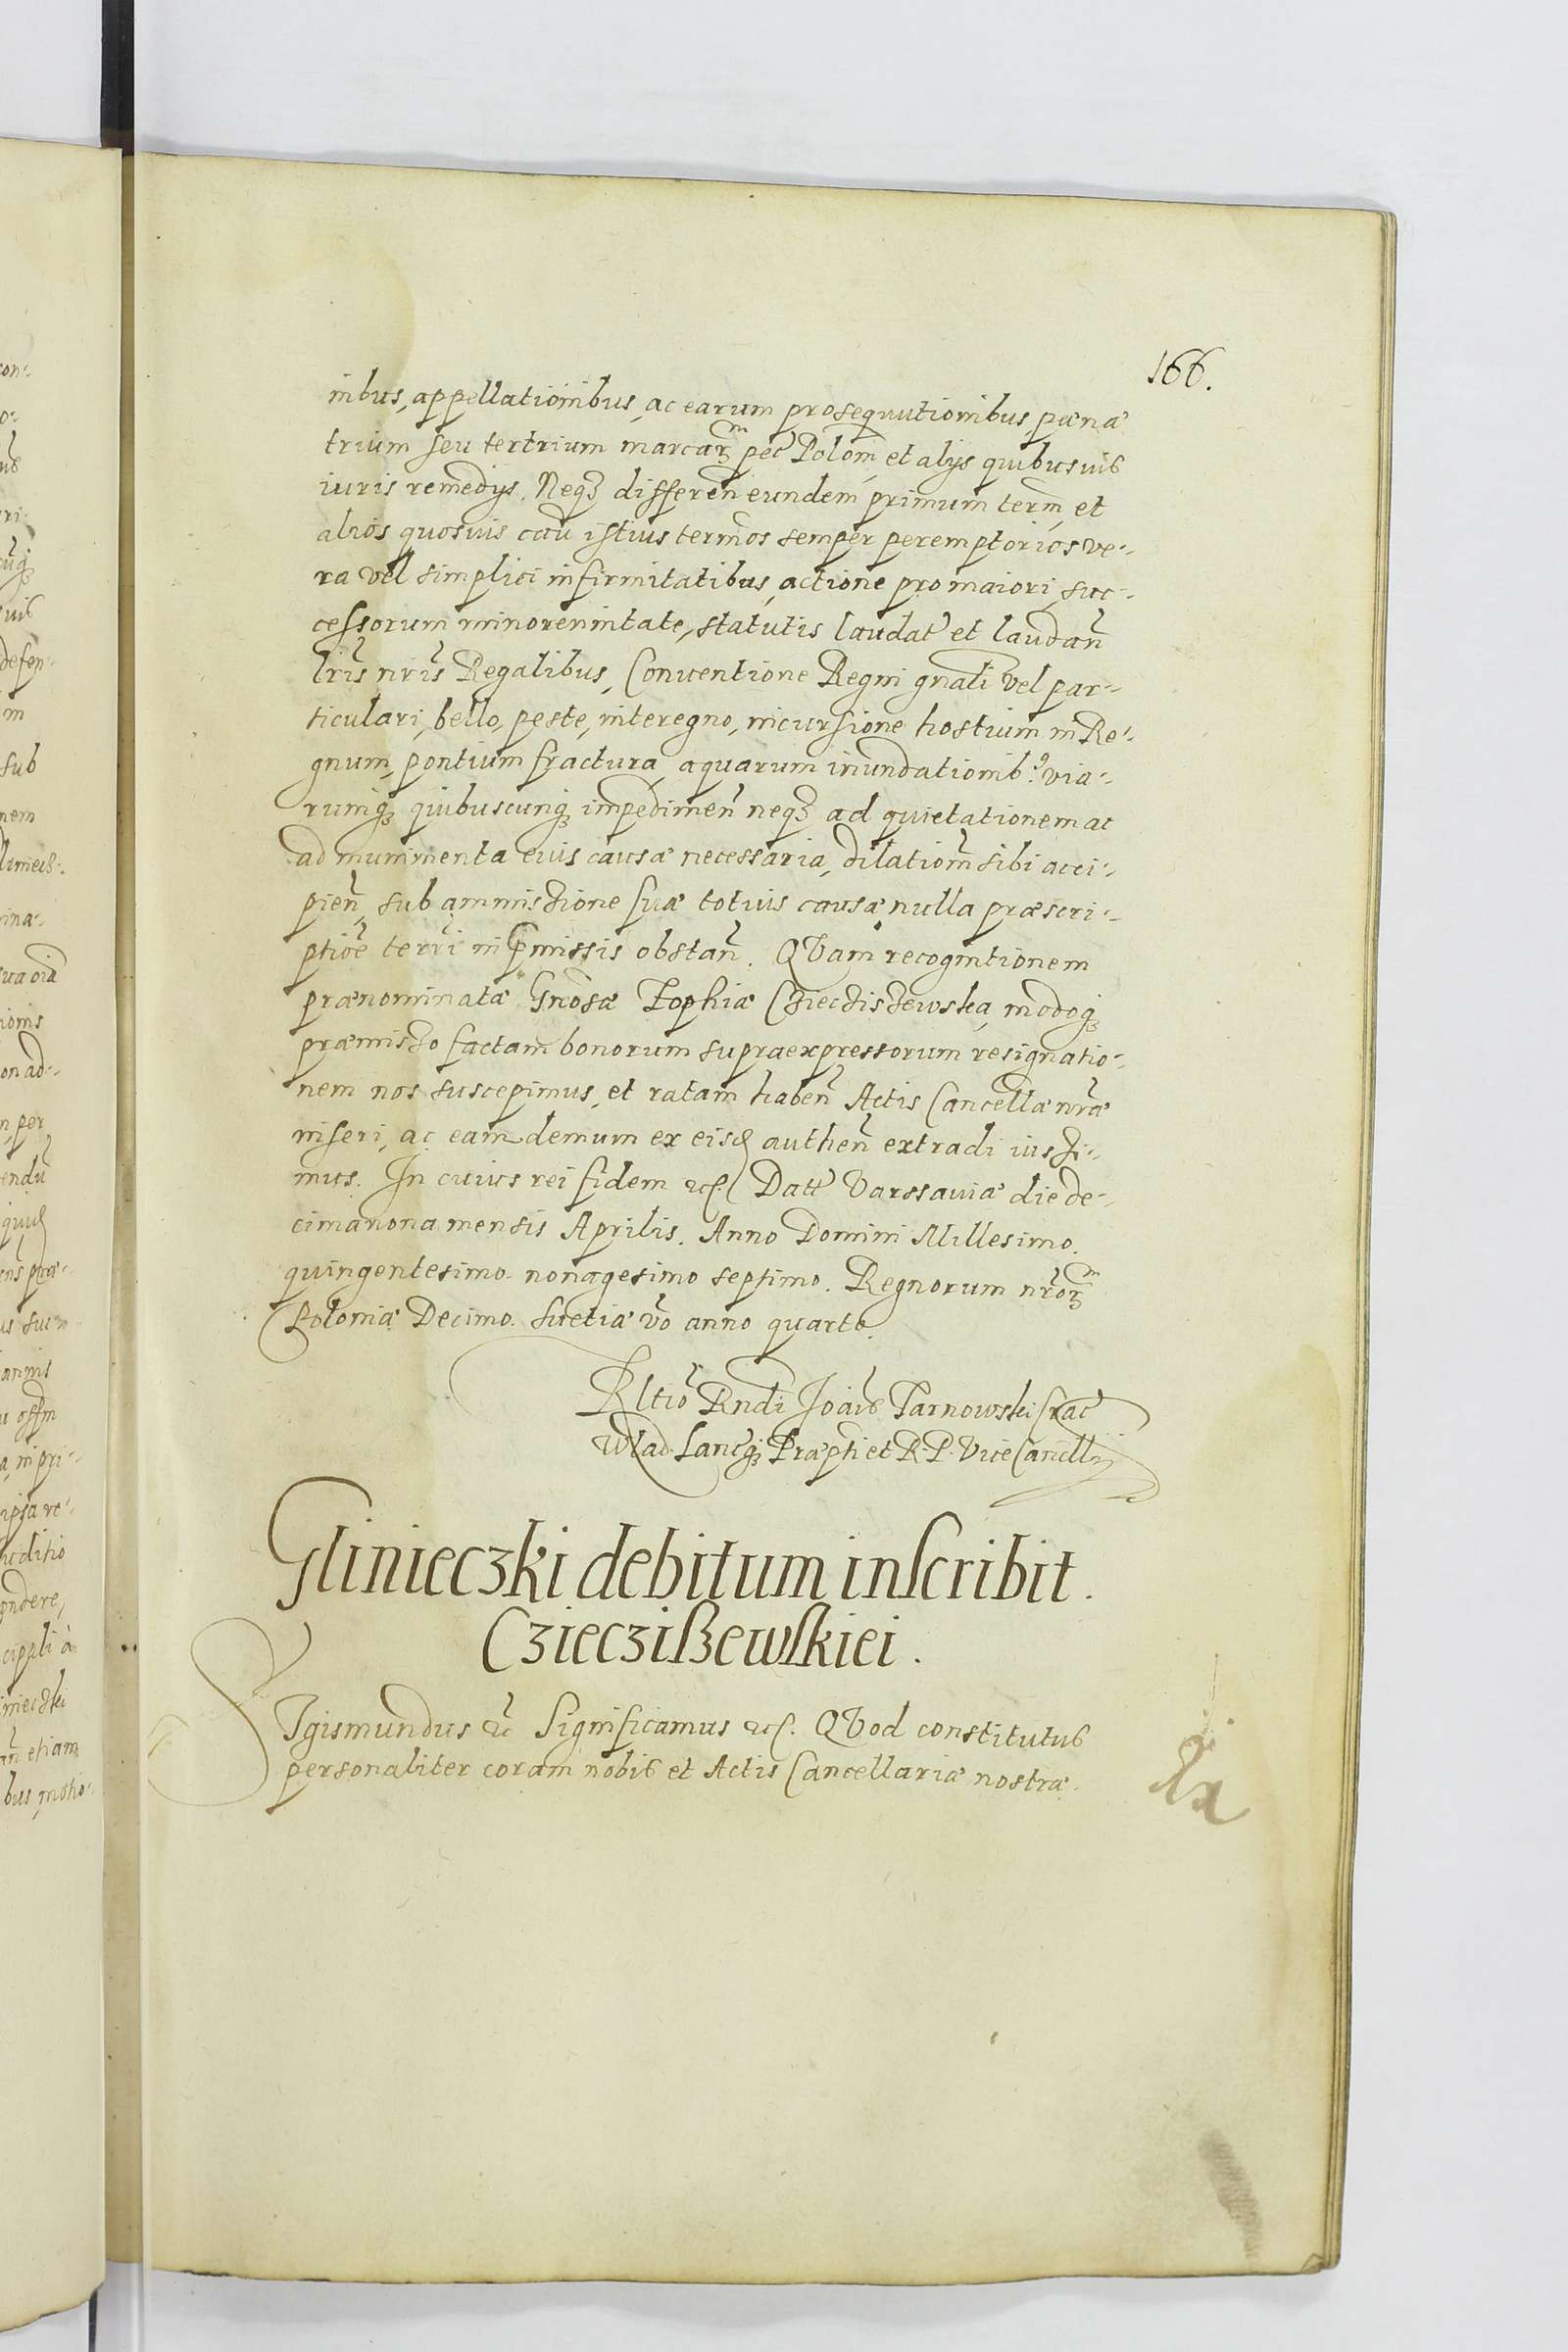 166.
nibus, appellationibus, ac earum prosequutionibus pœnæ
trium seu tertrium marcarꝫ pec Polom, et alijs quibusuis
iuris remedijs. Neqꝫ differen eundem primum term, et
alios quosuis cau istius termos semper peremptorios ve-
ra vel simplici infirmitatibus, actione pro maiori, suc-
cessorum minorennitate, statutis laudat et laudan
lris nris Regalibus, Conuentione Regni gnali vel par-
ticulari, bello, peste, interegno, incursione hostium in Re-
gnum, pontium fractura, aquarum inundationib9 via-
rumqꝫ quibuscunqꝫ impedimen neqꝫ ad quietationem ac
ad munimenta euis causæ necessaria, dilationm sibi acci-
pien, sub ammissione suæ totius causæ, nulla præscri-
ptioe terri in pmissis obstan. QVam recognitionem
prænominatæ Gnosæ Zophiæ Cziecziszewska, modoqꝫ
præmisso factam bonorum supraexpressorum resignatio-
nem nos suscepimus, et ratam haben Actis Cancellæ nræ
inseri, ac eam demum ex eisd authen extradi iussi-
mus. In cuius rei fidem etc. Datt Varssauiæ die de-
cimanona mensis Aprilis. Anno Domini Millesimo.
quingentesimo nonagesimo septimo. Regnorum nrorꝫ
Poloniæ Decimo. Suetiæ vo anno quarto.
Rltio Rndi Joais Tarnowski Crac
Wlad Lancqꝫ Præpti et R. P. ViceCancellrij
Glinieczki debitum inscribit.
Czieczißewskiei.
SIgismundus etc Significamus etc. QVod constitutus
personaliter coram nobis et Actis Cancellariæ nostræ